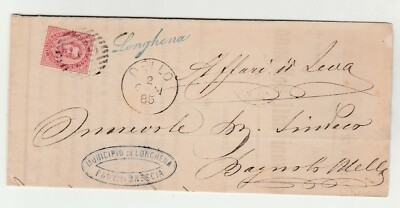 Longhena
DELLO
2
85
Affari di Leva
Onorevole Sr. Sindaco
Bagnolo Mella
MUNICIPIO DI LONGHENA
BRESCIA